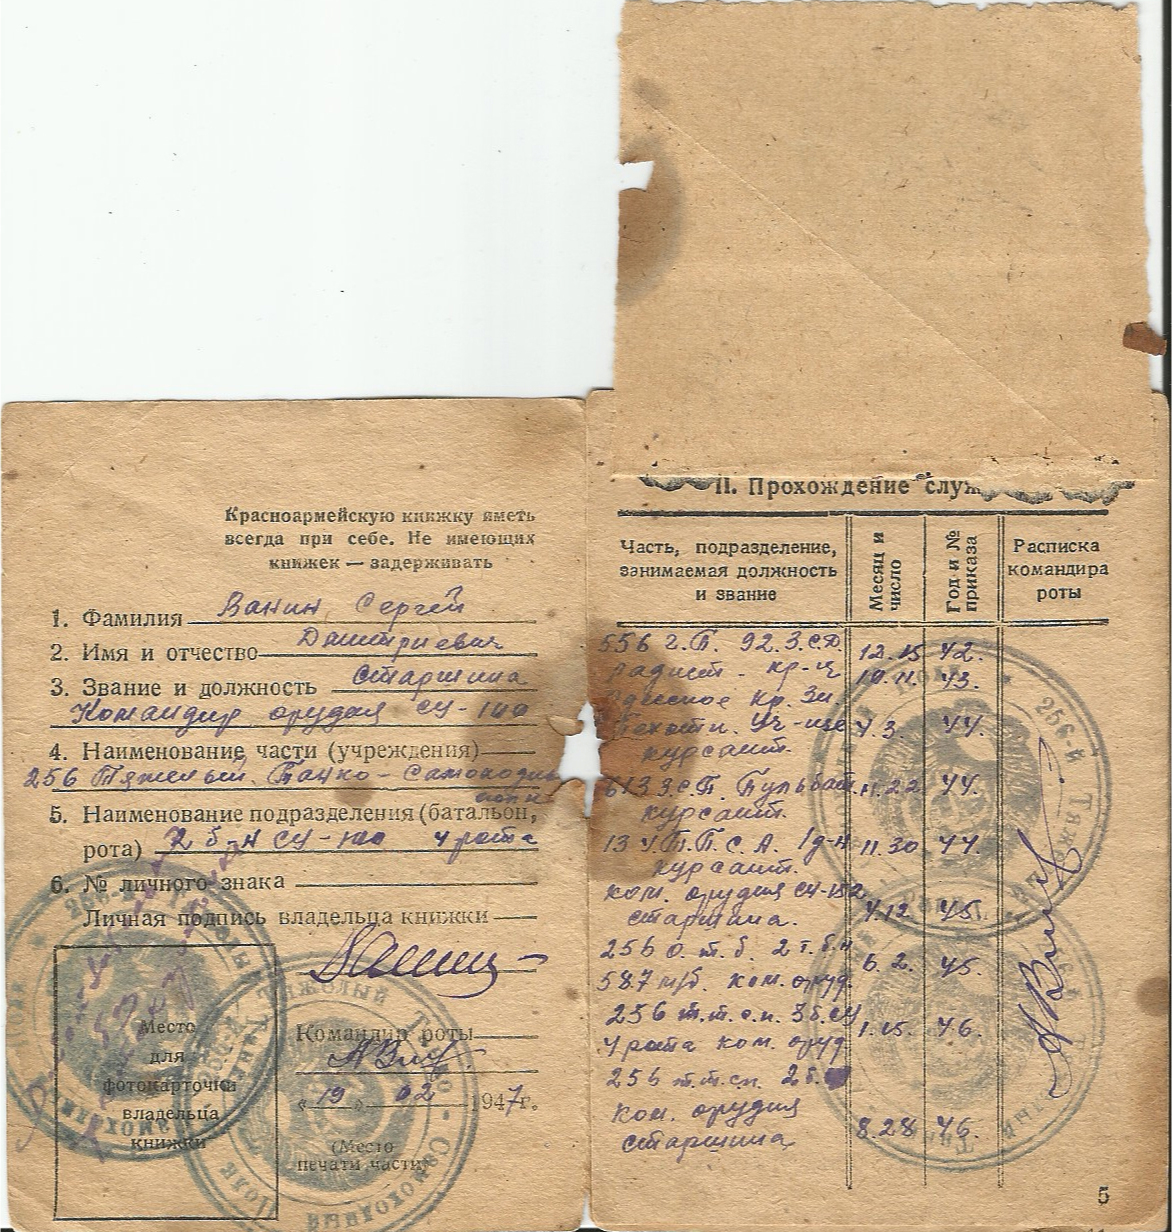 Красноармейскую книжку иметь
всегда при себе. Не имеющих
книжек — задерживать
1. Фамилия Ванин, Сергей
2. Имя и отчество Дмитриевич
3. Звание и должность старшина
Командир орудия СУ-100
4. Наименование части (учреждения)
256 Тяжелый Танко-Самоходный
полк
5. Наименование подразделения (батальон,
рота) 2 б-н СУ-100 4 рота
6. № личного знака
Личная подпись владельца книжки
Место
для
фотокарточки
владельца
книжки
Командир роты
„19" 02 1947г.
(Место
печати части)
II. Прохождение служ
Часть, подразделение,
занимаемая должность
и звание
Месяц и
число
Год и №
приказа
Расписка
командира
роты
556 с.п. 92.З.с.д. 12.15 42.
радист - кр-ц 10.11. 43.
Одесское Кр. Зн.
Пехотн. Уч-ще 4.3. 44
курсант.
613 З.с.П. Пульбат. 11.22 44.
курсант.
13 У.Т.П.С.А. 1д-н 11.30 44.
курсант.
ком. орудия СУ-152
старшина. 4.12 45.
256 о. т. б. 2 т. б-н 6.2. 45.
587 п/б. ком. оруд.
256 т.т.с.п. 3б. СУ 1.15. 46.
4 рота ком. оруд
256 т.т.сп. 2б.
ком. орудия
старшина 8.28 46.
256-й Тяжелый Танко-Самоходный Полк
5